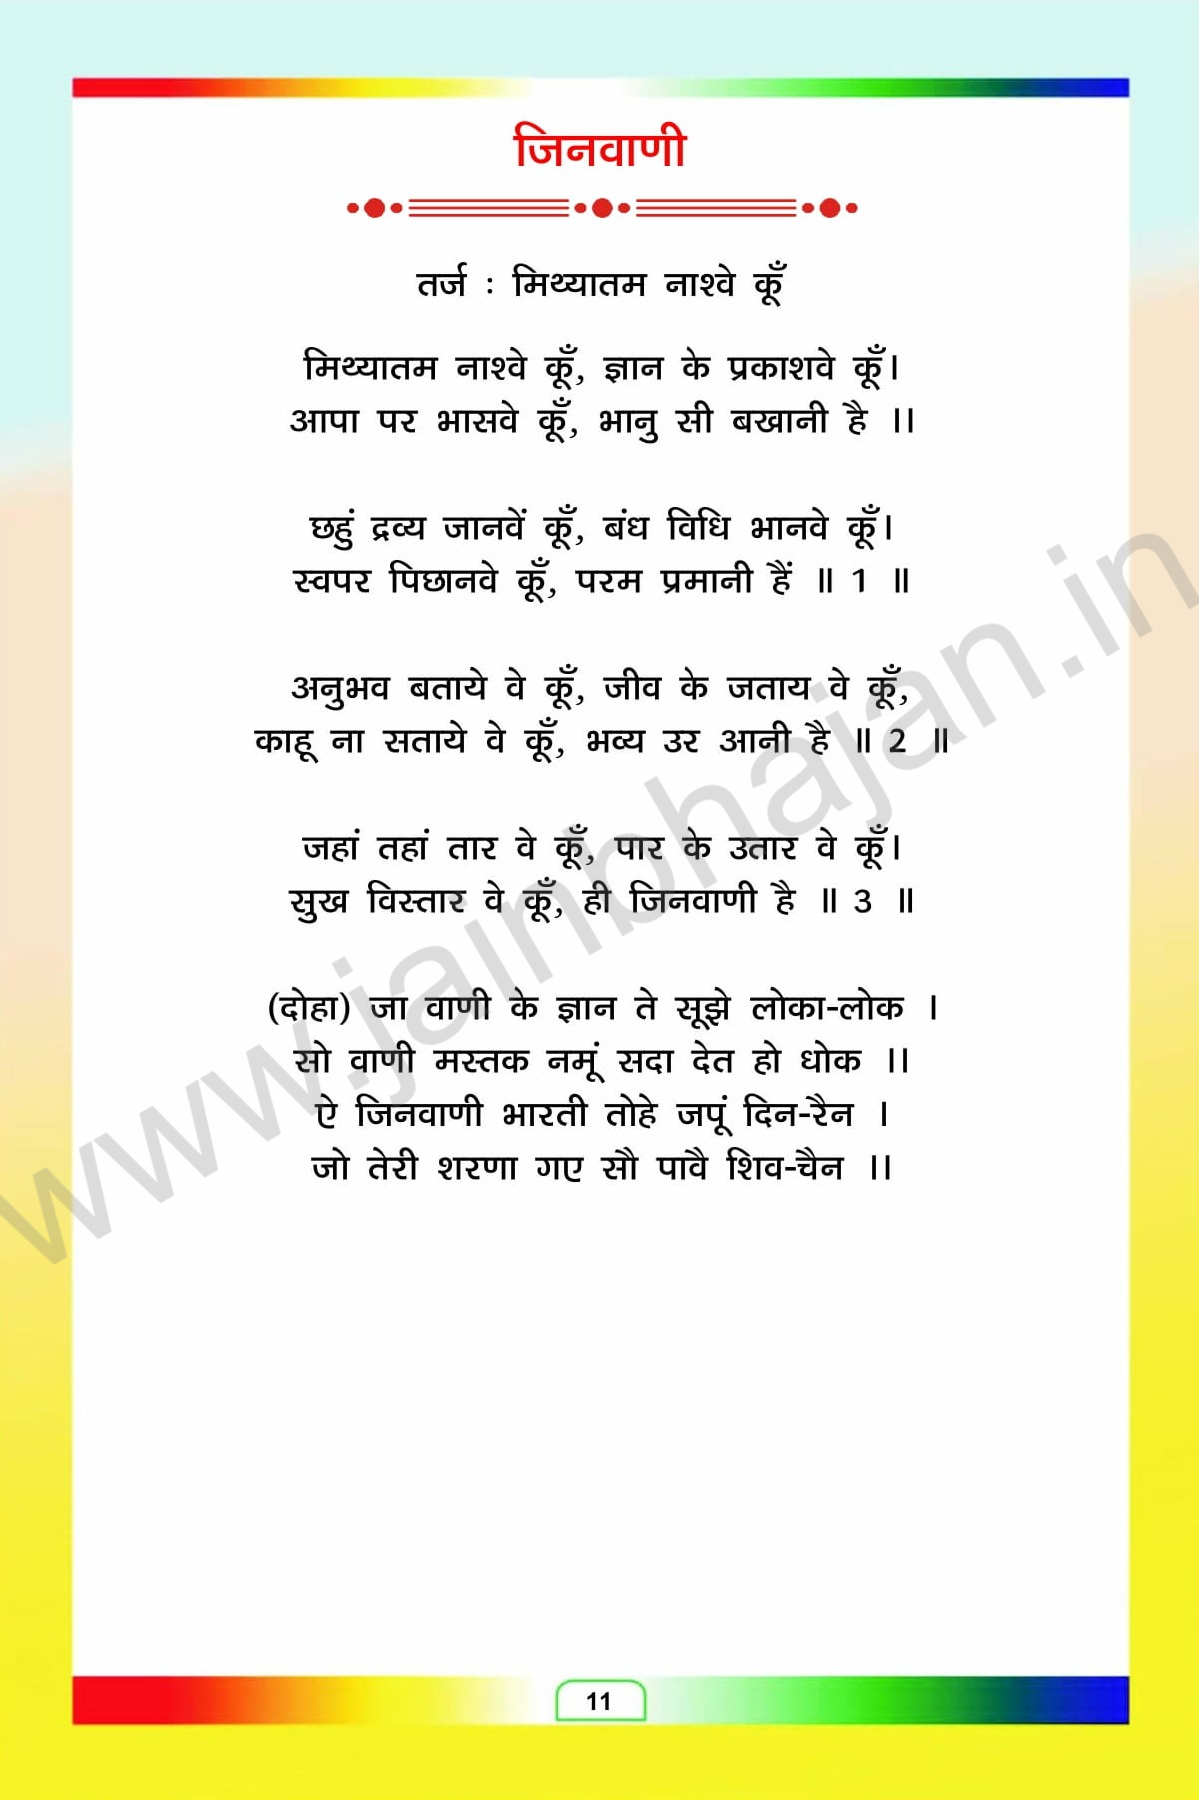 जिनवाणी
तर्ज : मिथ्यातम नाश्वे कूँ
मिथ्यातम नाश्वे कूँ, ज्ञान के प्रकाशवे कूँ।
आपा पर भासवे कूँ, भानु सी बखानी है ।।
छहुं द्रव्य जानवें कूँ, बंध विधि भानवे कूँ।
स्वपर पिछानवे कूँ, परम प्रमानी हैं ॥ 1 ॥
अनुभव बताये वे कूँ, जीव के जताय वे कूँ,
काहू ना सताये वे कूँ, भव्य उर आनी है ॥ 2 ॥
जहां तहां तार वे कूँ, पार के उतार वे कूँ।
सुख विस्तार वे कूँ, ही जिनवाणी है ॥ 3 ॥
(दोहा) जा वाणी के ज्ञान ते सूझे लोका-लोक ।
सो वाणी मस्तक नमूं सदा देत हो धोक ।।
ऐ जिनवाणी भारती तोहे जपूं दिन-रैन ।
जो तेरी शरणा गए सौ पावै शिव-चैन ।।
www.jainbhajan.in
11